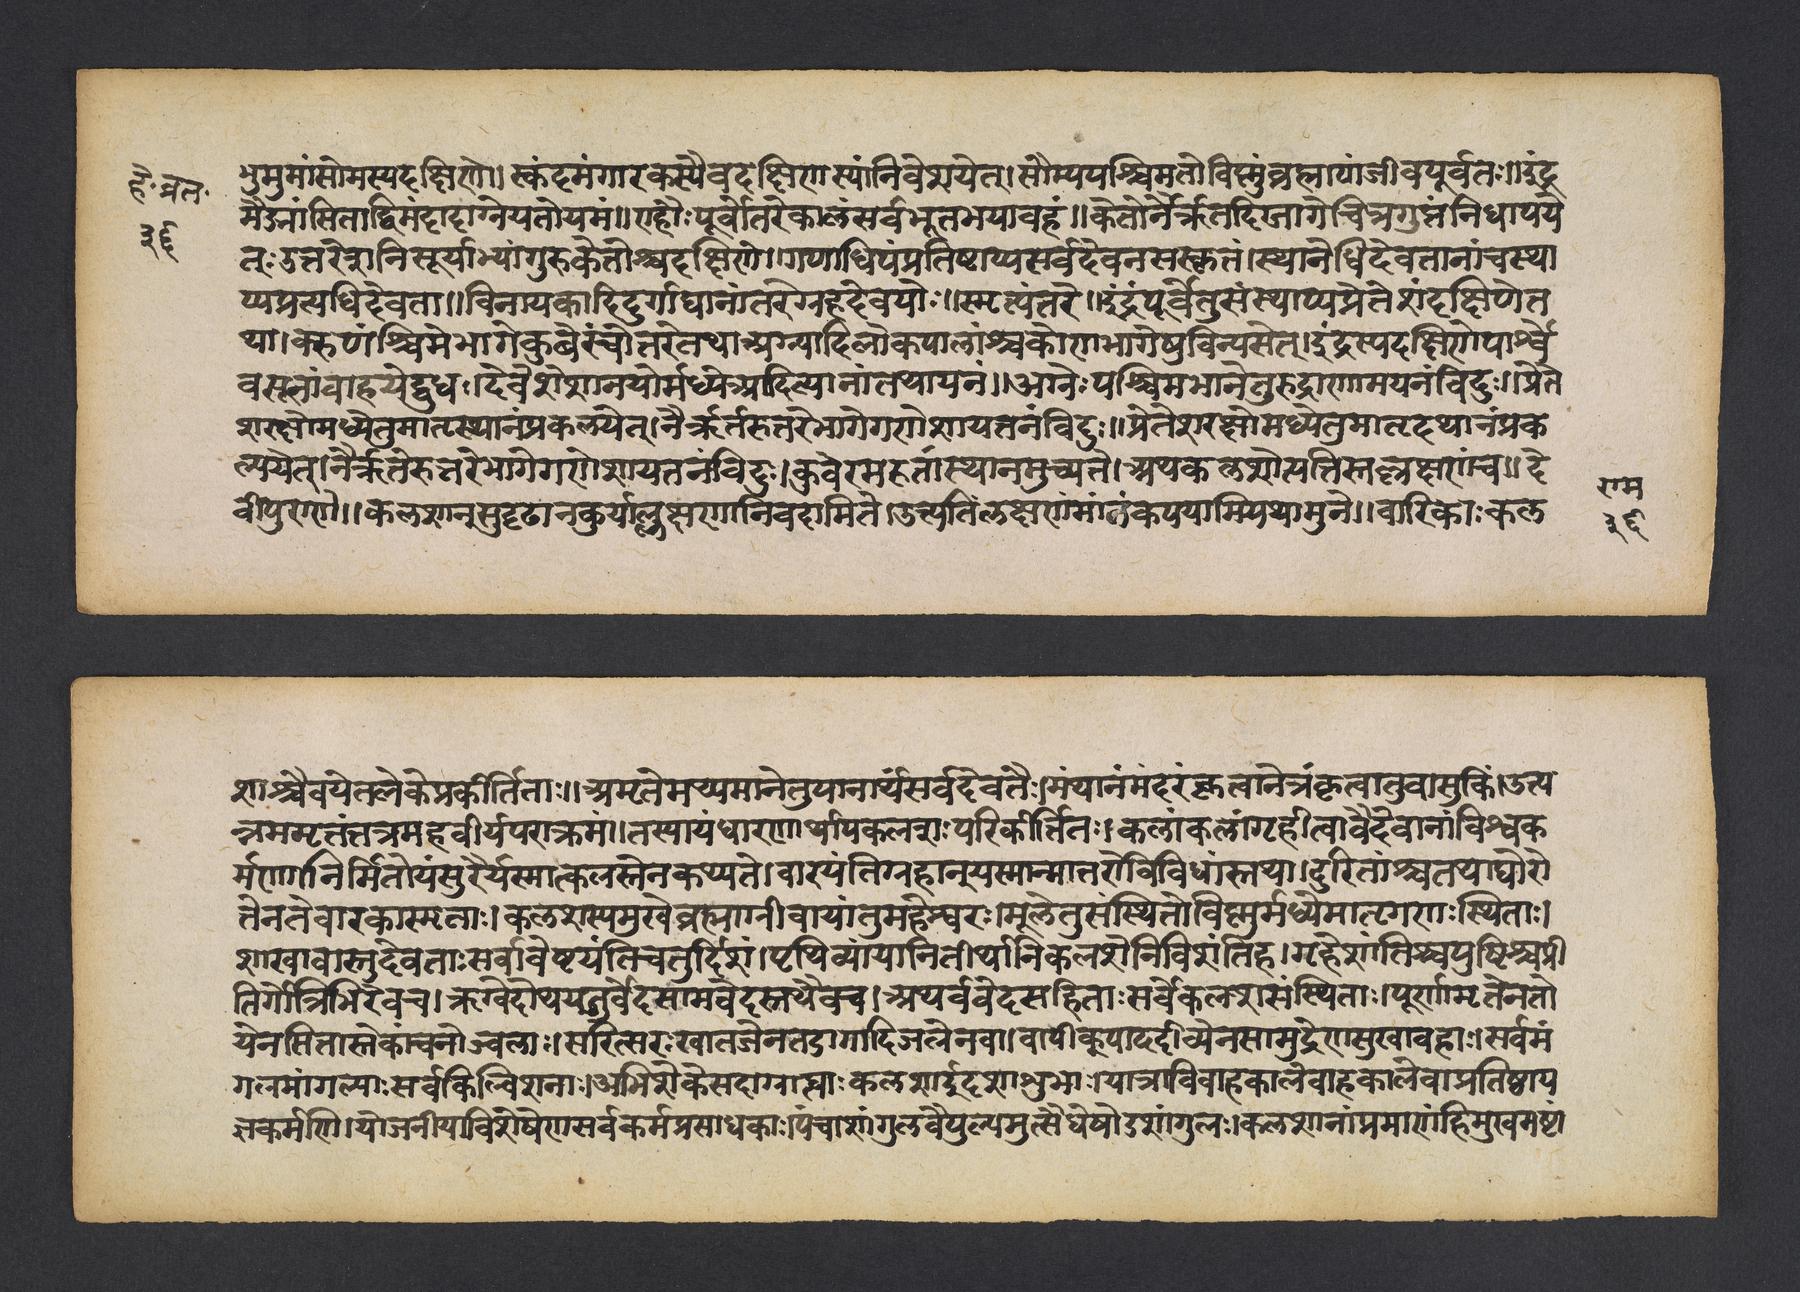 हे. व्रत.
३६
भुमुमांसोमस्यदक्षिणे॥स्कंदमंगारकस्यैवदक्षिणस्यांनिवेशयेत्।सौम्यपश्चिमतोविष्णुंब्रह्माणंजीवपूर्वतः॥इंद्र
मैंऽनांसिताद्विमंदादाग्नेयतोयमं॥राहौःपूर्वोतरेकालंसर्वभूतभयावहं॥केतोर्नैर्ऋतदिग्भागेचित्रगुप्तंनिधापये
त्ःउत्तरेशनिसूर्याभ्यांगुरुकेतौश्चदक्षिणे॥गणाधिपंप्रतिष्टाप्यसर्वदेवनसस्कृतं।स्थानेधिदेवतानांचस्था
प्यप्रत्यधिदेवता॥विनायकादिदुर्गाद्यानांतरेग्रहदेवयोः॥स्मृत्यंतरे॥इंद्रंपूर्वेतुसंस्थाप्यप्रेतेशंदक्षिणेत
था।वरुणंश्चिमेभागेकुबेरंचोतरेतथाअग्न्यादिलोकपालांश्चकोणभागेषुविन्यसेत्।इंद्रस्यदक्षिणेपार्श्वे
वसूनांवाहयेद्बुधः।देवेशेशानयोर्मध्येआदित्यानांतथायनं॥अग्नेःपश्चिमभागेतुरुद्राणामयनंविदुः॥प्रेते
शरक्षोमध्येतुमातृस्थानंप्रकल्पयेत्।नैर्ऋतेरुत्तरेभागेगणेशायतनंविदुः॥प्रेतेशरक्षोमध्येतुमातृहथानंप्रक
ल्पयेत्।नैर्ऋतेरुत्तरेभागेगणेशायतनंविदुः।कुवेरमरुतांस्थानमुच्यते।अथकलशोत्पत्तिस्तल्लक्षणंच॥दे
वीपुराणे॥कलशान्सुदृढान्कुर्याल्लक्षणानिवदामिते।उत्पतिंलक्षणंमांतंकथयामियथामुने॥वारिकोःकल
राम
३६
शाश्चैवयेतलेकेप्रकीर्तिताः॥अमृतेमथ्यमानेतुपानार्थंसर्वदेवतैः।मंथानंमंदरंकृत्वानेत्रंकृत्वातुवासुकिं।उत्प
न्नममृतंतत्रमहवीर्यपराक्रमं॥तस्यायंधारणार्थायकलशःपरिकीर्त्तितः।कलांकलांगृहीत्वावैदेवानांविश्वक
र्मणानिर्मितोयंसुरैर्यस्मात्कलस्तेनकथ्यते।वारयंतिग्रहान्यस्मान्मातरोविविधांस्तथा।दुरितांश्चतथाघोरां
तेनतेवारकास्मृताः।कलशस्यमुखेब्रह्माग्नीवायांतुमहेश्वरः।मूलेतुसंस्थितोविष्णुर्मध्येमातृगणाःस्थिताः।
शाखावास्तुदेवताःसर्वावेष्टयंतिचतुर्दिशं।पृथिव्यांयानितीर्थानिकलशेनिविशंतिह।गृहेशांतिश्चपुष्टिश्चप्री
तिर्गोत्रिभिरेवच।ऋग्वेदोथयजुर्वेदसामवेदस्तथैवच।अथर्ववेदसहिताःसर्वेकलशसंस्थिताः।पूर्णामृतेनतो
येनसितास्तेकांचनोज्वलाः।सरित्सरःखातजेनतडागादिजलेनवा।वापीकूपादर्दीव्येनसामुद्रेणसुखावहाः।सर्वमं
गलमांगल्याःसर्वकिल्विशनाः।अभिशेकेसदाग्राह्याःकलशादृदृशाशुभाः।यात्राविवाहकालेवाहकालेवाप्रतिष्ठाय
ज्ञकर्मणि।योजनीयाविशेषेणसर्वकर्मप्रसाधकाः।पंचाशांगुलवैपुल्यमुत्सेधेषोडशांगुलः।कलशानांप्रमाणंहिमुखमष्टां